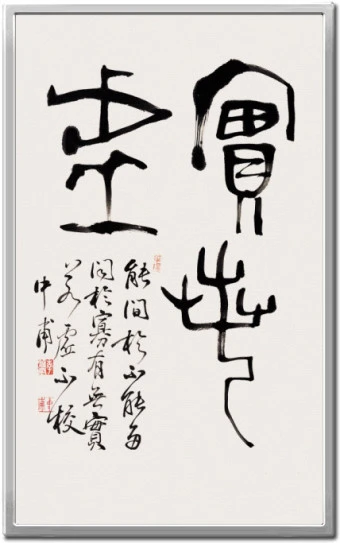 實若
虛
能問於不能多
問於寡有無實
若虛不校
中甫